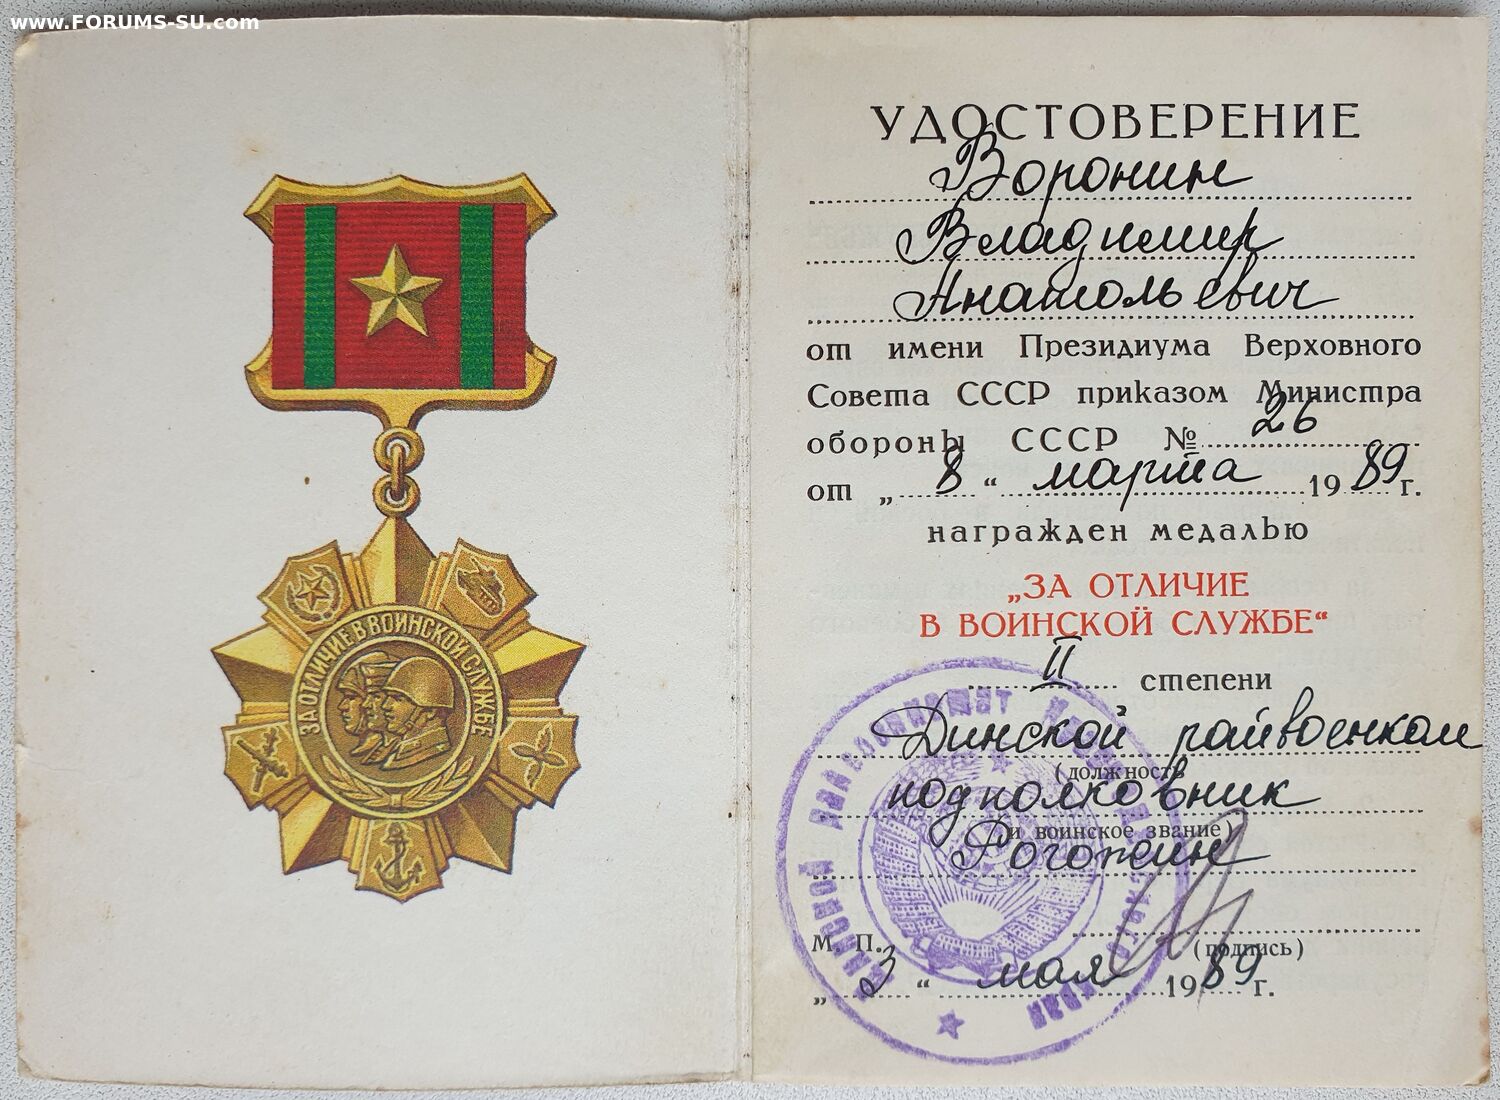 www.FORUMS-SU.com
ЗА ОТЛИЧИЕ В ВОИНСКОЙ СЛУЖБЕ
УДОСТОВЕРЕНИЕ
Воронин
Владимир
Анатольевич
от имени Президиума Верховного
Совета СССР приказом Министра
обороны СССР № 26
от „ 8 “ марта 19 89 г.
награжден медалью
„ЗА ОТЛИЧИЕ
В ВОИНСКОЙ СЛУЖБЕ“
II степени
Динской райвоенком
(должность
подполковник
и воинское звание)
Рогожин
М. П.
(подпись)
„ 3 “ мая 19 89 г.